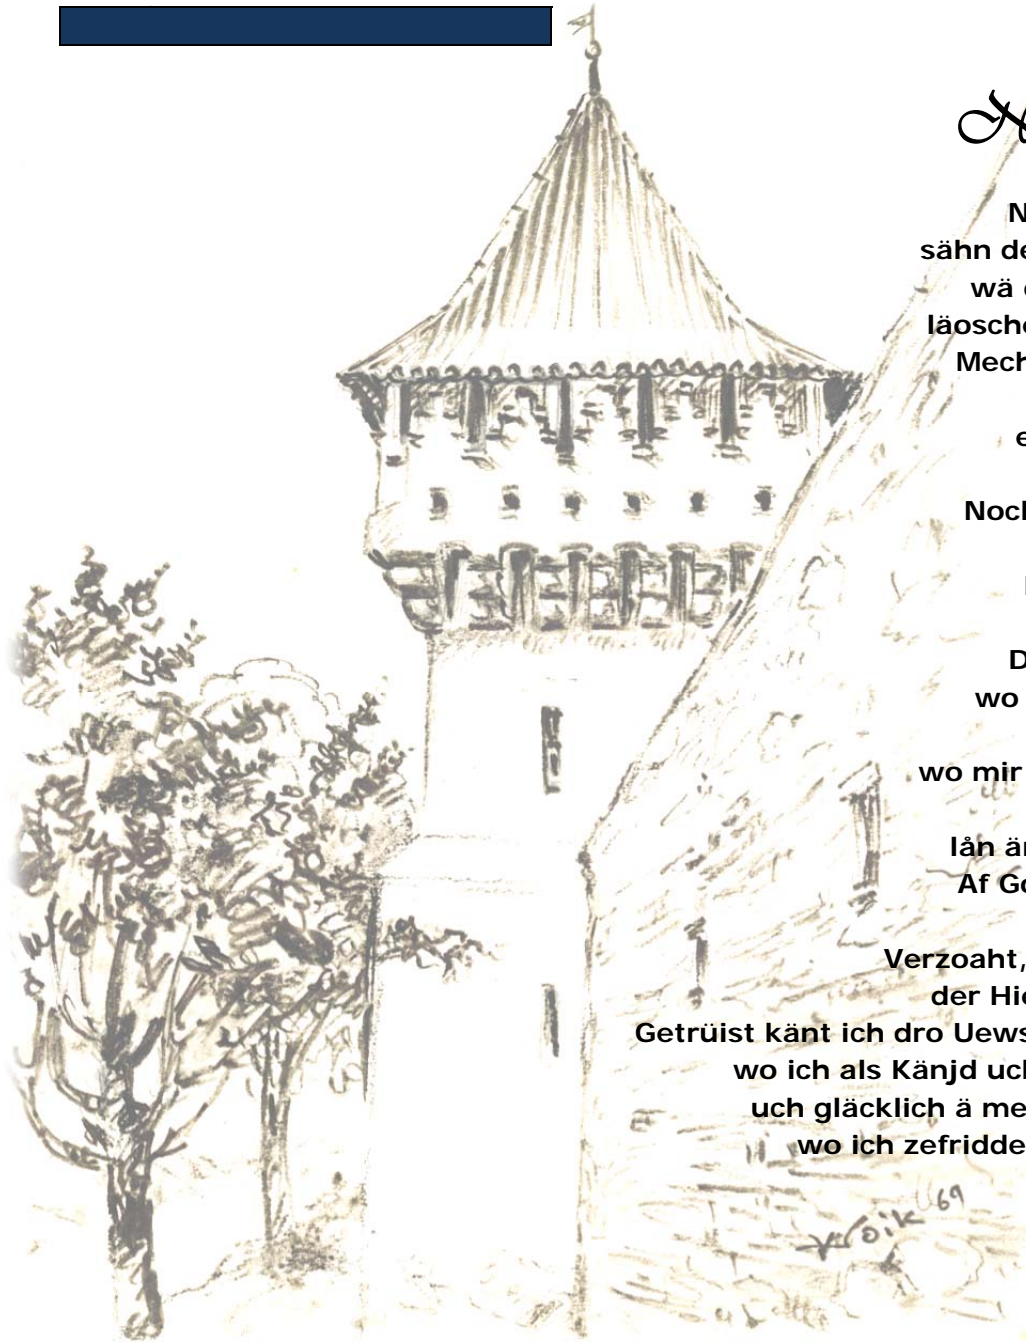 H
N
sähn de
wä
läosche
Mech
e
Noch
D
wo
wo mir
lån än
Af Go
Verzoaht,
der Hie
Getrüist känt ich dro Uews
wo ich als Känjd uch
uch gläcklich ä me
wo ich zefridde
69